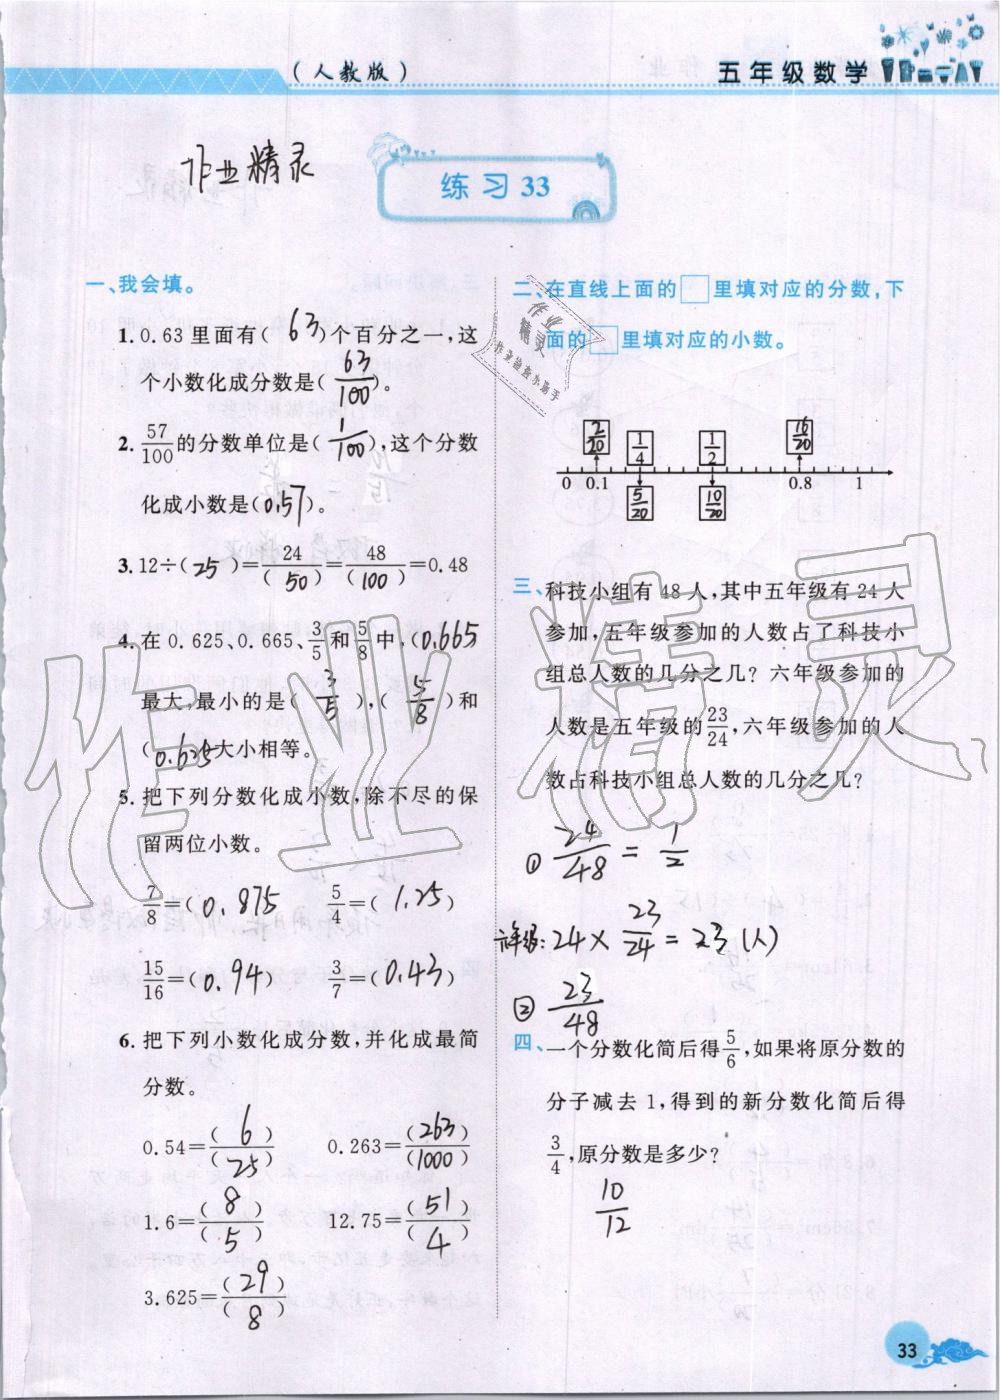 （人教版）
五年级数学
作业精灵
练习33
一、我会填。
1.0.63里面有(63)个百分之一,这
个小数化成分数是(63/100)。
2.57/100的分数单位是(1/100),这个分数
化成小数是(0.57)。
3.12÷(25)=24/(50)=48/(100)=0.48
4.在0.625、0.665、3/5和5/8中,(0.665
最大,最小的是(3/5),(5/8)和
(0.625大小相等。
5.把下列分数化成小数,除不尽的保
留两位小数。
7/8=(0.875 5/4=(1.25)
15/16=(0.94) 3/7=(0.43)
6.把下列小数化成分数,并化成最简
分数。
0.54=(6)/(25) 0.263=(263)/(1000)
1.6=(8)/(5) 12.75=(51)/(4)
3.625=(29)/(8)
二、在直线上面的□里填对应的分数,下
面的□里填对应的小数。
作业
精灵
作业检查小助手
2/20 1/4 1/2 16/20
0 0.1 0.8 1
5/20 10/20
三、科技小组有48人,其中五年级有24人
参加,五年级参加的人数占了科技小
组总人数的几分之几？六年级参加的
人数是五年级的23/24,六年级参加的人
数占科技小组总人数的几分之几？
① 24/48=1/2
六年级:24×23/24=23(人)
② 23/48
四、一个分数化简后得5/6,如果将原分数的
分子减去1,得到的新分数化简后得
3/4,原分数是多少?
10/12
作业精灵
33